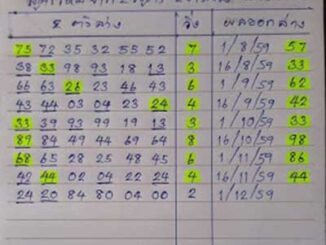 8 ตัวล่าง วิ่ง ผลออกล่าง
75 72 35 32 55 52 7 1/8/59 57
38 33 98 93 18 13 3 16/8/59 33
66 63 26 23 46 43 6 1/9/59 62
43 44 03 04 23 24 4 16/9/59 42
33 39 93 99 19 13 3 1/10/59 33
89 84 49 44 69 64 8 16/10/59 98
68 65 28 25 48 45 6 1/11/59 86
42 44 02 04 22 24 4 16/11/59 44
24 20 84 80 04 00 2 1/12/59